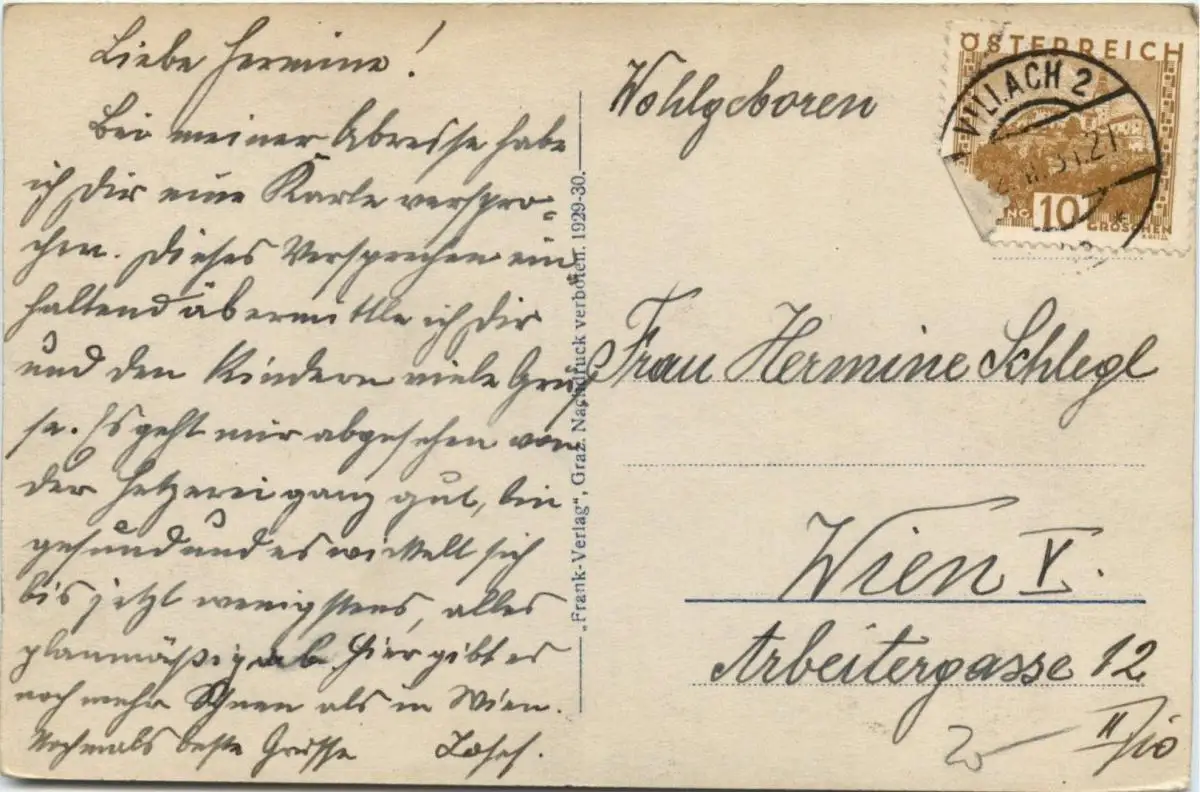 Liebe Hermine!
Bei meiner Abreise habe
ich Dir eine Karte verspro-
chen. Dieses Versprechen ein-
haltend übermittle ich Dir
und den Kindern viele Grüs-
se. Es geht mir abgesehen von
der Hetzerei ganz gut, bin
gesund und es wickelt sich
bis jetzt wenigstens, alles
planmäßig ab. Hier gibt es
noch mehr Schnee als in Wien.
Nochmals beste Grüsse Josef.
„Frank-Verlag", Graz. Nachdruck verboten. 1929-30.
ÖSTERREICH
10
GROSCHEN
VILLACH 2
Wohlgeboren
Frau Hermine Schlegl
Wien V.
Arbeitergasse 12
II/10